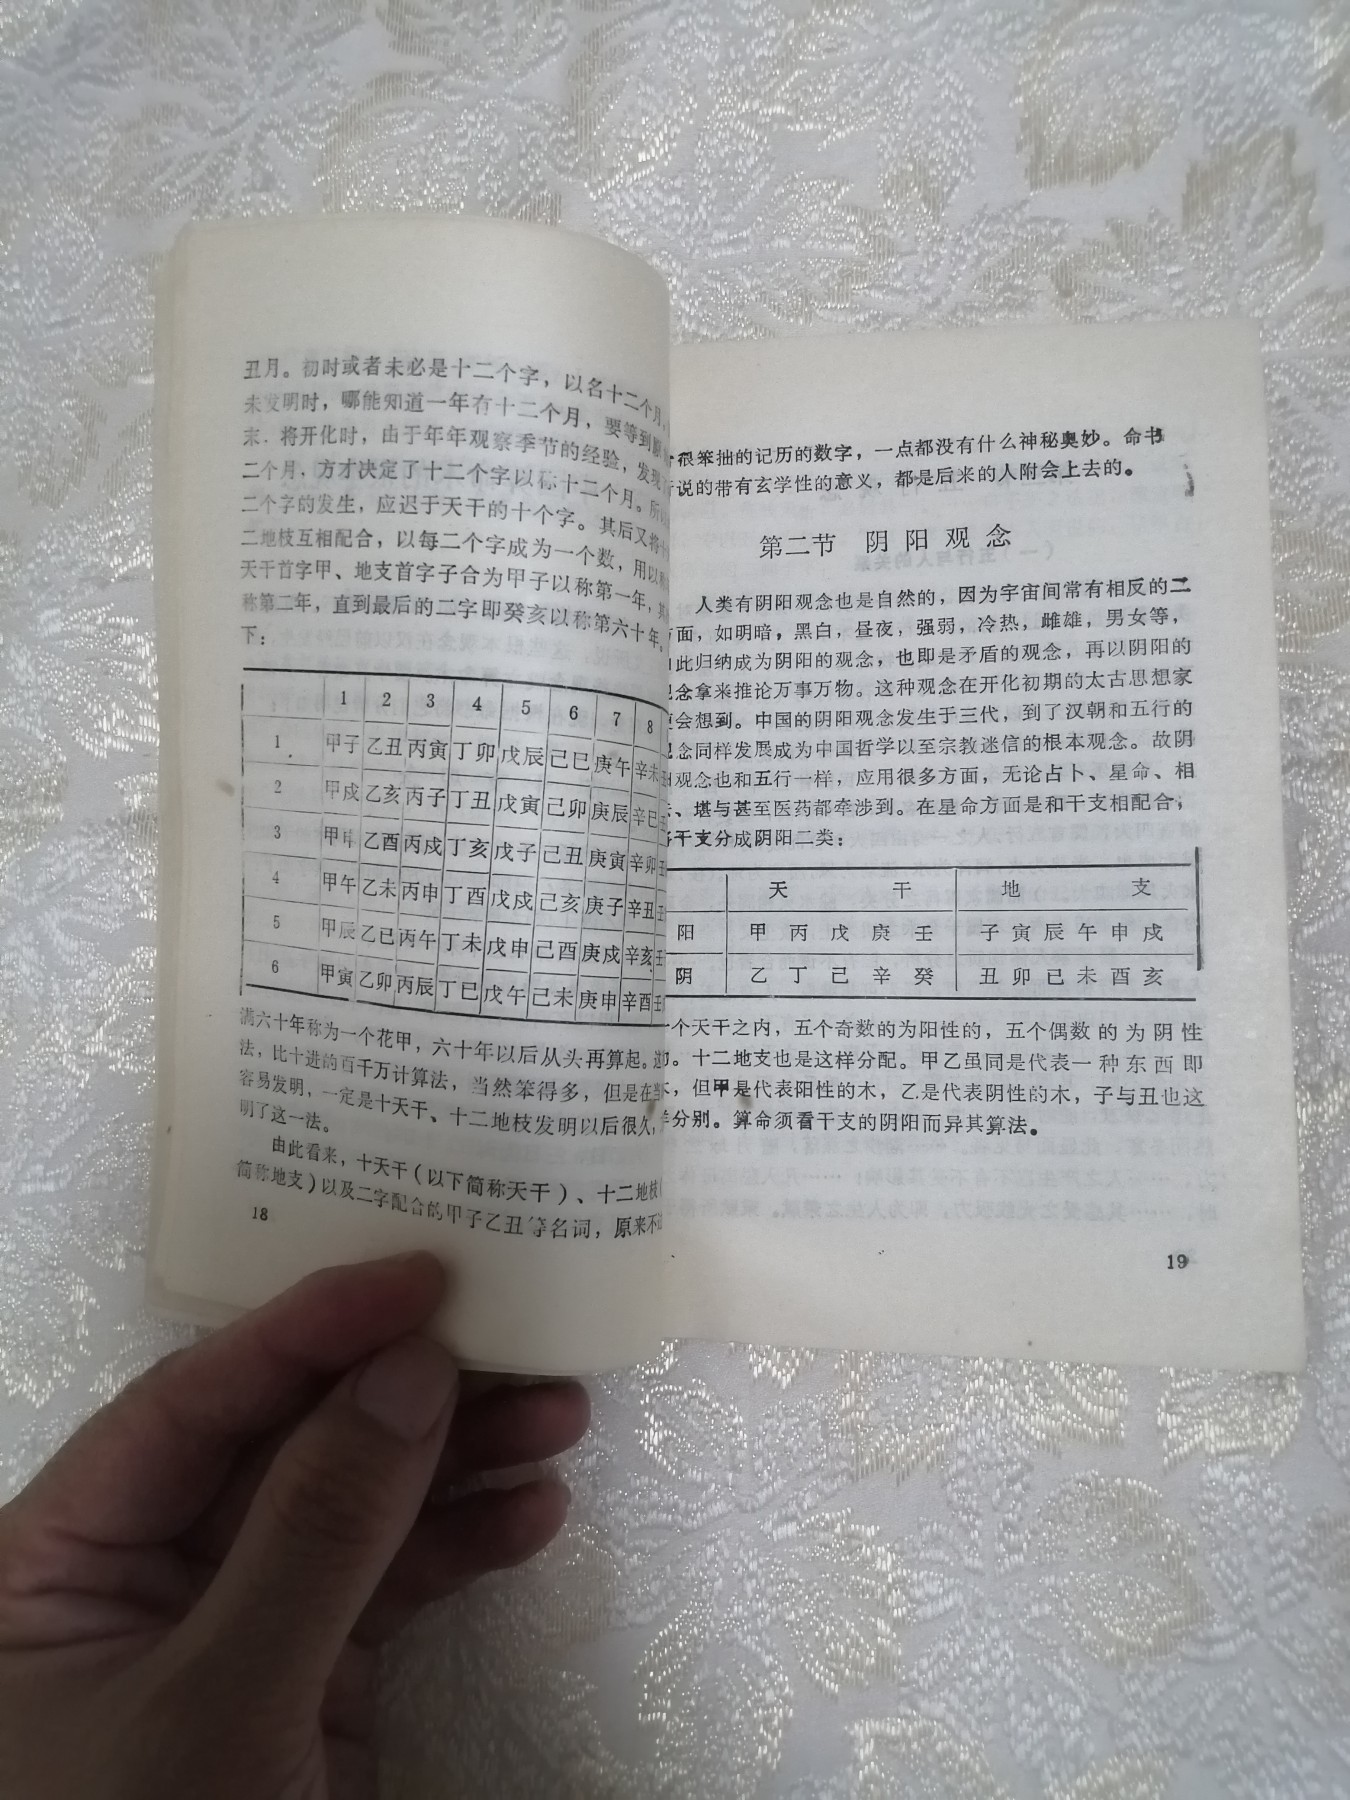 丑月。初时或者未必是十二个字，以名十二个月，
未发明时，哪能知道一年有十二个月，要等到
末．将开化时，由于年年观察季节的经验，发现
二个月．方才决定了十二个字以称十二个月。所
二个字的发生，应迟于天干的十个字。其后又将十
二地枝互相配合，以每二个字成为一个数，用以
天干首字甲、地支首字子合为甲子以称第一年，其
称第二年，直到最后的二字即癸亥以称第六十年。
下：
1 2 3 4 5 6 7 8
1 甲子 乙丑 丙寅 丁卯 戊辰 己巳 庚午 辛未
2 甲戌 乙亥 丙子 丁丑 戊寅 己卯 庚辰 辛巳
3 甲申 乙酉 丙戌 丁亥 戊子 己丑 庚寅 辛卯
4 甲午 乙未 丙申 丁酉 戊戌 己亥 庚子 辛丑
5 甲辰 乙巳 丙午 丁未 戊申 己酉 庚戌 辛亥
6 甲寅 乙卯 丙辰 丁巳 戊午 己未 庚申 辛酉
满六十年称为一个花甲，六十年以后从头再算起。这
法，比十进的百千万计算法，当然笨得多，但是在当
容易发明，一定是十天干、十二地枝发明以后很久，
明了这一法。
由此看来，十天干（以下简称天干）、十二地枝（
简称地支）以及二字配合的甲子乙丑等名词，原来不
18
很笨抽的记历的数字，一点都没有什么神秘奥妙。命书
所说的带有玄学性的意义，都是后来的人附会上去的。
第二节 阴阳观念
人类有阴阳观念也是自然的，因为宇宙间常有相反的二
方面，如明暗，黑白，昼夜，强弱，冷热，雌雄，男女等，
由此归纳成为阴阳的观念，也即是矛盾的观念，再以阴阳的
观念拿来推论万事万物。这种观念在开化初期的太古思想家
便会想到。中国的阴阳观念发生于三代，到了汉朝和五行的
观念同样发展成为中国哲学以至宗教迷信的根本观念。故阴
阳观念也和五行一样，应用很多方面，无论占卜、星命、相
、堪与甚至医药都牵涉到。在星命方面是和干支相配合，
将干支分成阴阳二类：
天干 地支
阳 甲丙戊庚壬 子寅辰午申戌
阴 乙丁己辛癸 丑卯巳未酉亥
个天干之内，五个奇数的为阳性的，五个偶数的为阴性
的。十二地支也是这样分配。甲乙虽同是代表一种东西即
木，但甲是代表阳性的木，乙是代表阴性的木，子与丑也这
样分别。算命须看干支的阴阳而异其算法。
19